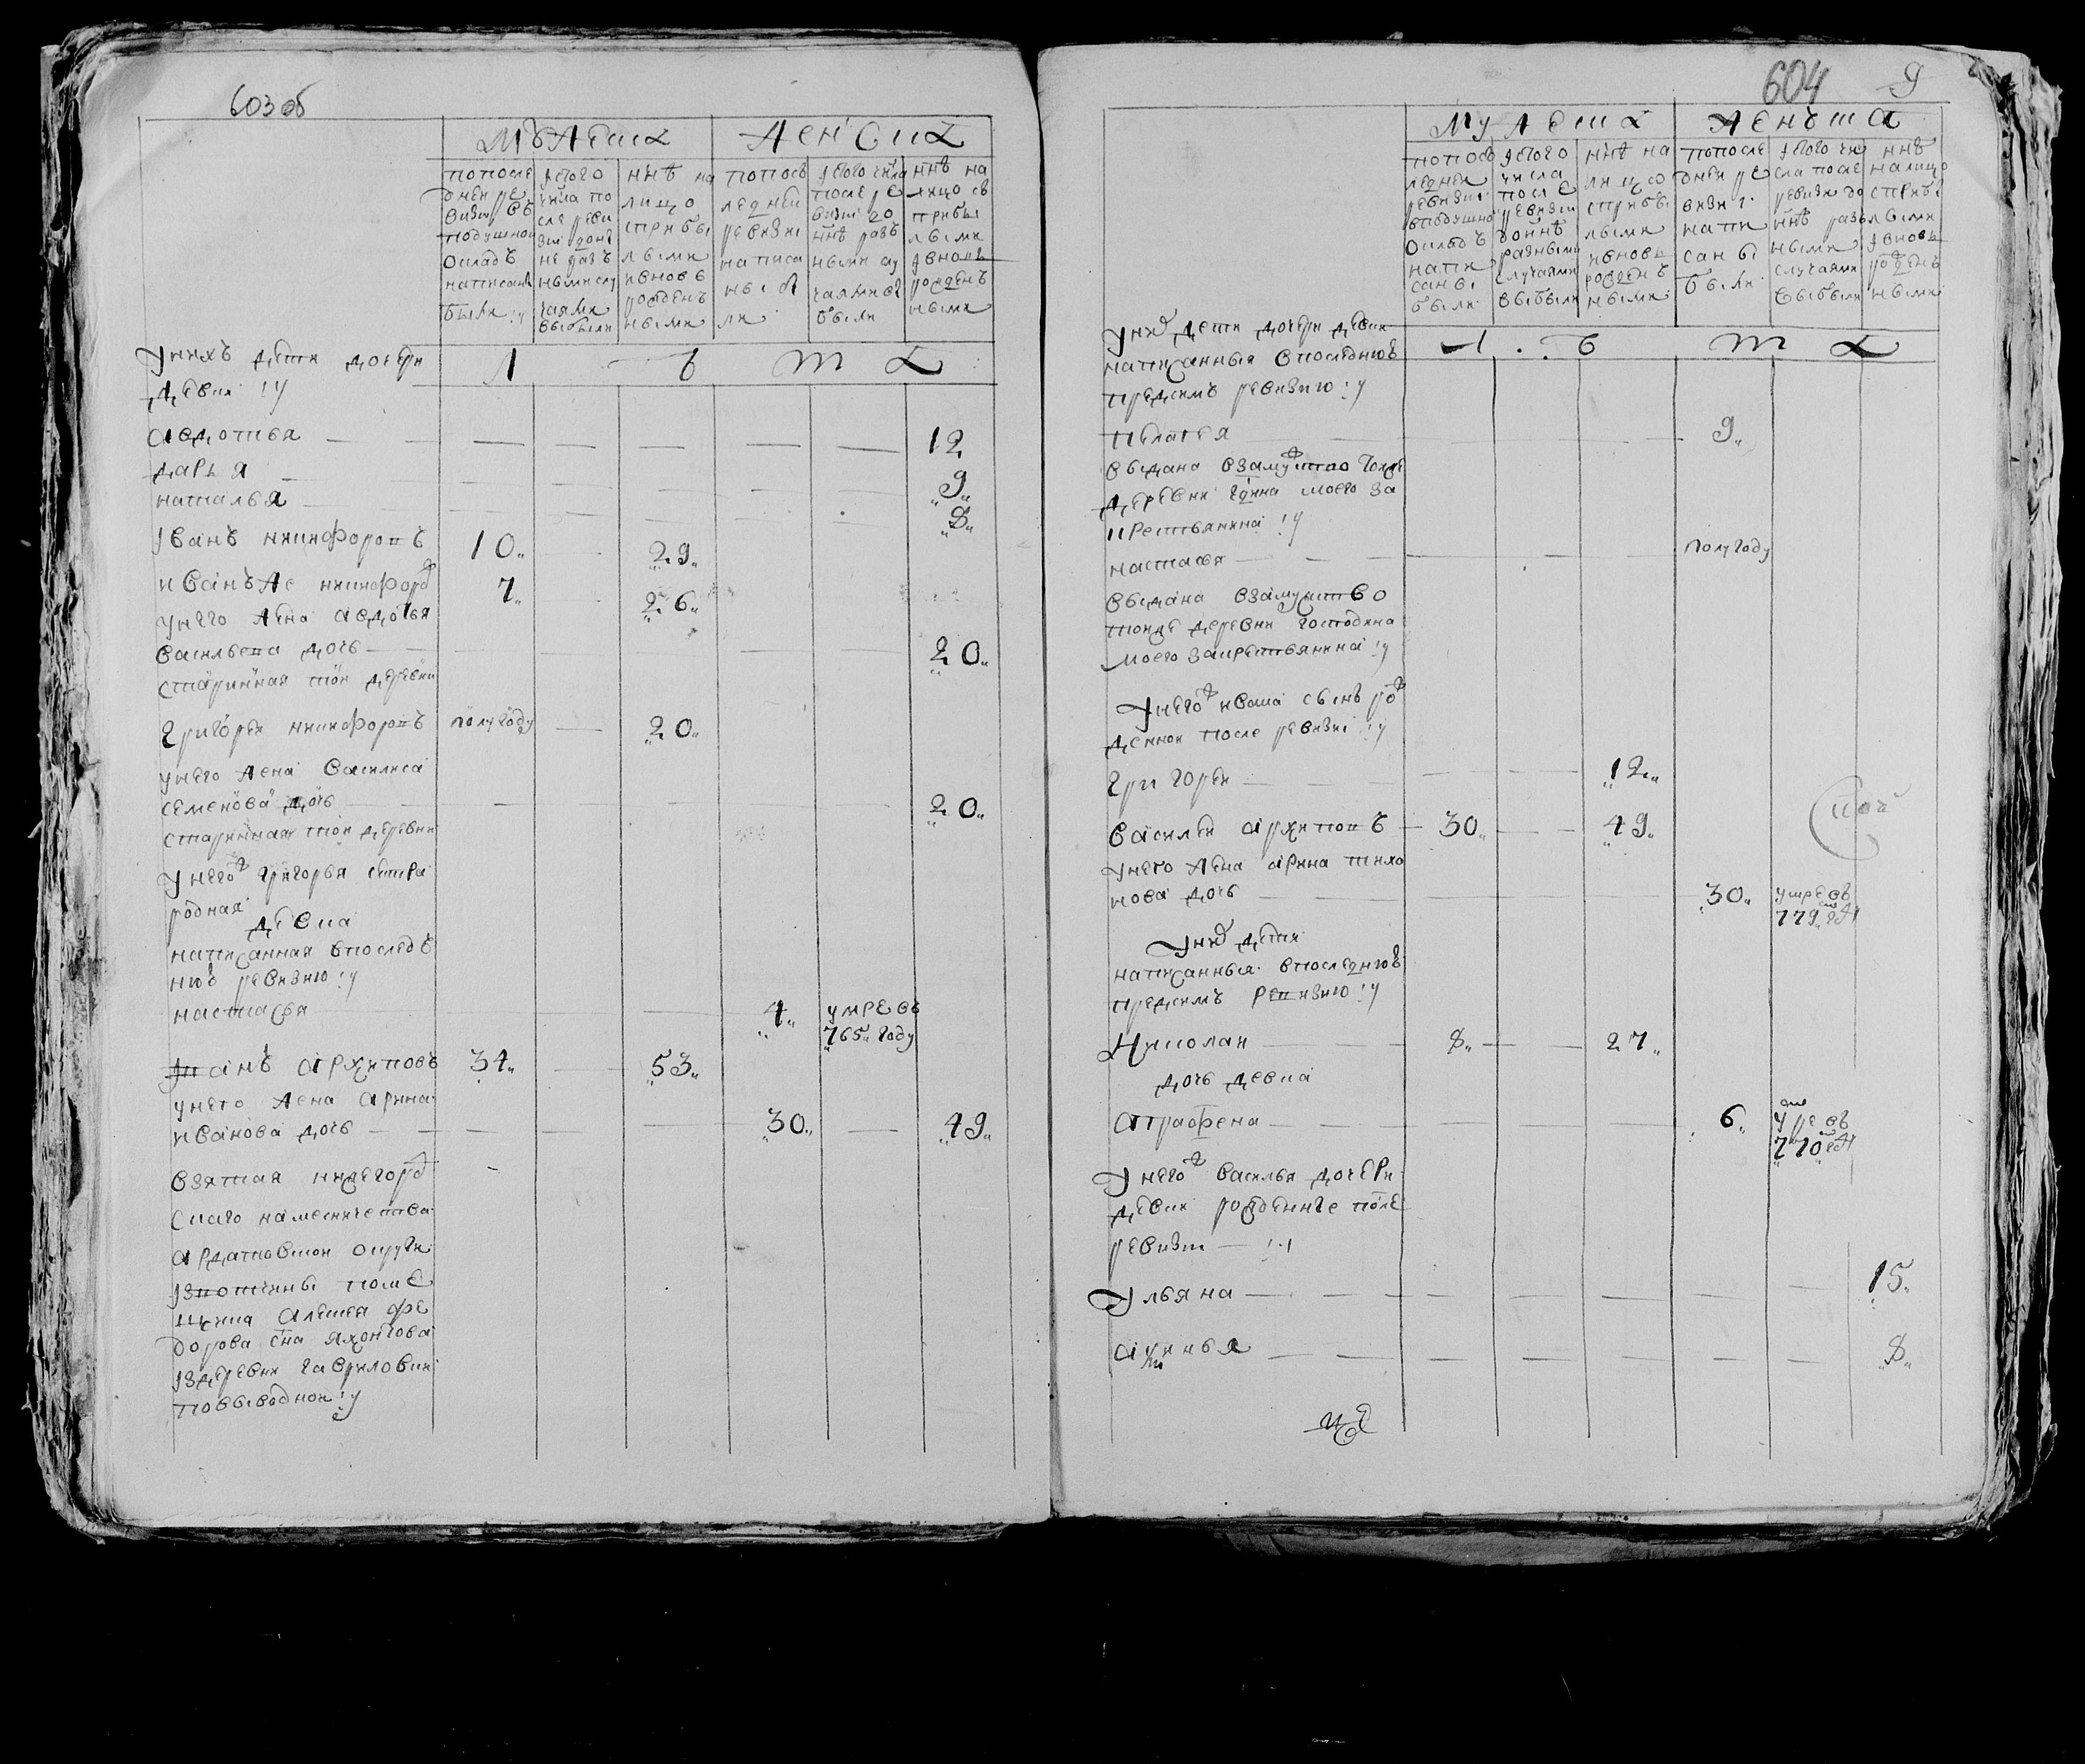 603 об
мѣжеска
женска
попосле
дней ре
визіи въ
подушной
окладъ
написаны
были
исего
числа по
сле реви
зіи донꙑ
не разъ
нымислу
чаями
выбыли
ннѣ на
лицо
сприбы
лыми
ивновь
рожден
ными
попосле
дней
ревизіи
написа
ны бы
ли
исего числа
после ре
визіи до
ннѣ раз
ными слу
чаями вы
были
ннѣ на
лицо съ
прибы
лыми
ивновь
рожден
ными
унихъ дѣти дочери
девки
л ѣ т а
авдотья 12
дарья 9
наталья 8
Іванъ никифоровъ 10 29
иванъ же никифоров 7 26
унего жена авдотья
васильева дочь 20
старинная той деревни
григорей никифоровъ полугоду 20
унего жена василиса
семенова дочь 20
старинная той деревни
унегож григорья сестра
родная
девка
написанная впоследъ
нюю ревизию
настасья 4 умре въ
765 году
Іванъ архиповъ 34 53
унего жена арина
иванова дочь 30 49
взятая нижегород
скаго наместничества
ардатовской округи
извотчины поме
щика алексея фе
дорова сна яхонтова
издеревни гавриловки
повыводной
604 9
мужеска
женъска
попосле
дней
ревизіи
вподушно
окладъ
напи
саны
были
исего
числа
после
ревизіи
доннѣ
разными
случаями
выбыли
ннѣ на
лицо
сприбы
лыми
ивновь
рожденъ
ными
попосле
дней ре
визіи
напи
саны
были
исего чи
сла после
ревизи до
ннѣ раз
ными
случаями
выбыли
ннѣ
налицо
сприбы
лыми
ивновь
рожденъ
ными
уних дети дочери девки
написанныя впоследнюю
предсимъ ревизию
л ѣ т а
пелагея 9
выдана взамужство тойже
деревни гдина моего за
крестьянина
настасья полугоду
выдана взамужство
тойже деревни господина
моего закрестьянина
унегож ивана сынъ рож
денной после ревизіи
григорей 12
василей архиповъ 30 49
унего жена арина тихо
нова дочь 30 умре въ
779 году
уних дети
написанныя впоследнюю
предсимъ ревизию
Николай 8 27
дочь девка
аграфена 6 умре въ
770 году
унегож василья дочери
девки рожденные после
ревизіи
Ульяна 15
аксинья 8